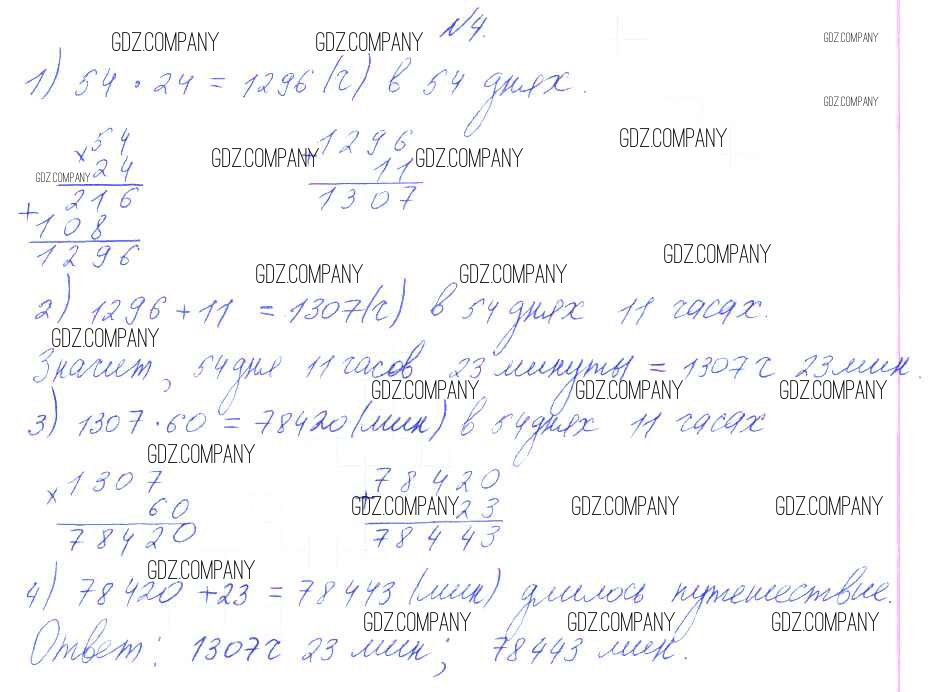 N4.
1) 54 · 24 = 1296 (г) в 54 днях.
× 54
24
+ 216
108
1296
+ 1296
11
1307
2) 1296 + 11 = 1307 (г) в 54 днях 11 часах.
Значит, 54 дня 11 часов 23 минуты = 1307 ч 23 мин.
3) 1307 · 60 = 78420 (мин) в 54 днях 11 часах
× 1307
60
78420
+ 78420
23
78443
4) 78420 + 23 = 78443 (мин) длилось путешествие.
Ответ: 1307 ч 23 мин; 78443 мин.
GDZ.COMPANY GDZ.COMPANY GDZ.COMPANY
GDZ.COMPANY
GDZ.COMPANY GDZ.COMPANY GDZ.COMPANY
GDZ.COMPANY
GDZ.COMPANY GDZ.COMPANY GDZ.COMPANY
GDZ.COMPANY
GDZ.COMPANY GDZ.COMPANY GDZ.COMPANY
GDZ.COMPANY
GDZ.COMPANY GDZ.COMPANY GDZ.COMPANY
GDZ.COMPANY
GDZ.COMPANY GDZ.COMPANY GDZ.COMPANY